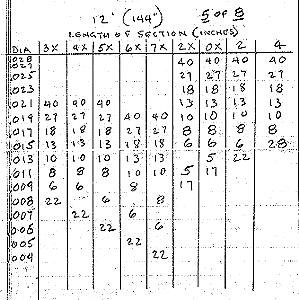 12' (144") 5 OF 8
LENGTH OF SECTION (INCHES)
DIA 3X 4X 5X 6X 7X 2X 0X 2 4
.028
.027 40 40 40 40
.025 27 27 27 27
.023 18 18 18 18
.021 40 40 40 13 13 13 13
.019 27 27 27 40 40 10 10 10 10
.017 18 18 18 27 27 8 8 8 8
.015 13 13 13 18 18 6 6 6 28
.013 10 10 10 13 13 5 22
.011 8 8 8 10 10 5 17
.009 6 6 8 17
.008 22 6 8
.007 22 6
.006 22 6
.005 22
.004 22